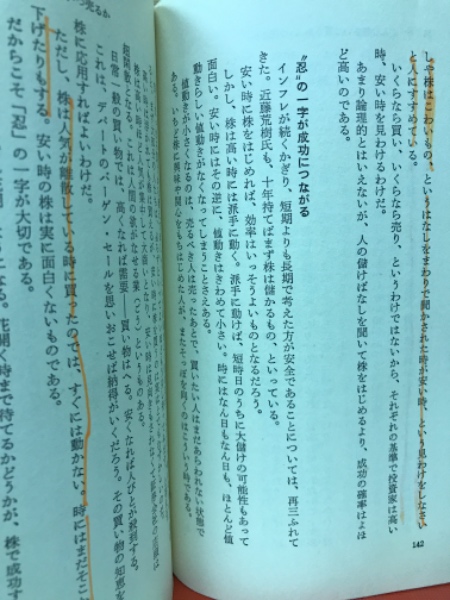 しや株はこわいもの、というはなしをまわりで聞かされた時が安い時、という見わけをしなさい
と人にすすめている。
いくらなら買い、いくらなら売り、というわけではないから、それぞれの基準で投資家は高い
時、安い時を見わけるわけだ。
あまり論理的とはいえないが、人の儲けばなしを聞いて株をはじめるより、成功の確率はよほ
ど高いのである。
“忍”の一字が成功につながる
インフレが続くかぎり、短期よりも長期で考えた方が安全であることについては、再三ふれて
きた。近藤荒樹氏も、十年持てばまず株は儲かるもの、といっている。
安い時に株をはじめれば、効率はいっそうよいものとなるだろう。
しかし、株は高い時には派手に動く。派手に動けば、短時日のうちに大儲けの可能性もあって
面白い。安い時にはその逆に、値動きはきわめて小さい。時にはなん日もなん日も、ほとんど値
動きらしい値動きがなくなってしまうことさえある。
値動きが小さくなるのは、売るべき人は売ったあとで、買いたい人はまだあらわれない状態で
ある。いちど株に興味や関心をもちはじめた人が、またそっぽを向くのはこういう時である。
142
売るか
超閑散
日常一般の買い物では、高くなれば需要――買い物はへる。安くなれば人びとが殺到する。
これは、デパートのバーゲン・セールを思いおこせば納得がいくだろう。その買い物の知恵を
株に応用すればよいわけだ。
ただし、株は人気が離散している時に買ったのでは、すぐには動かない。時にはまだそこ
下げたりもする。安い時の株は実に面白くないものである。
だからこそ「忍」の一字が大切である。
花開く時まで待てるかどうかが、株で成功す